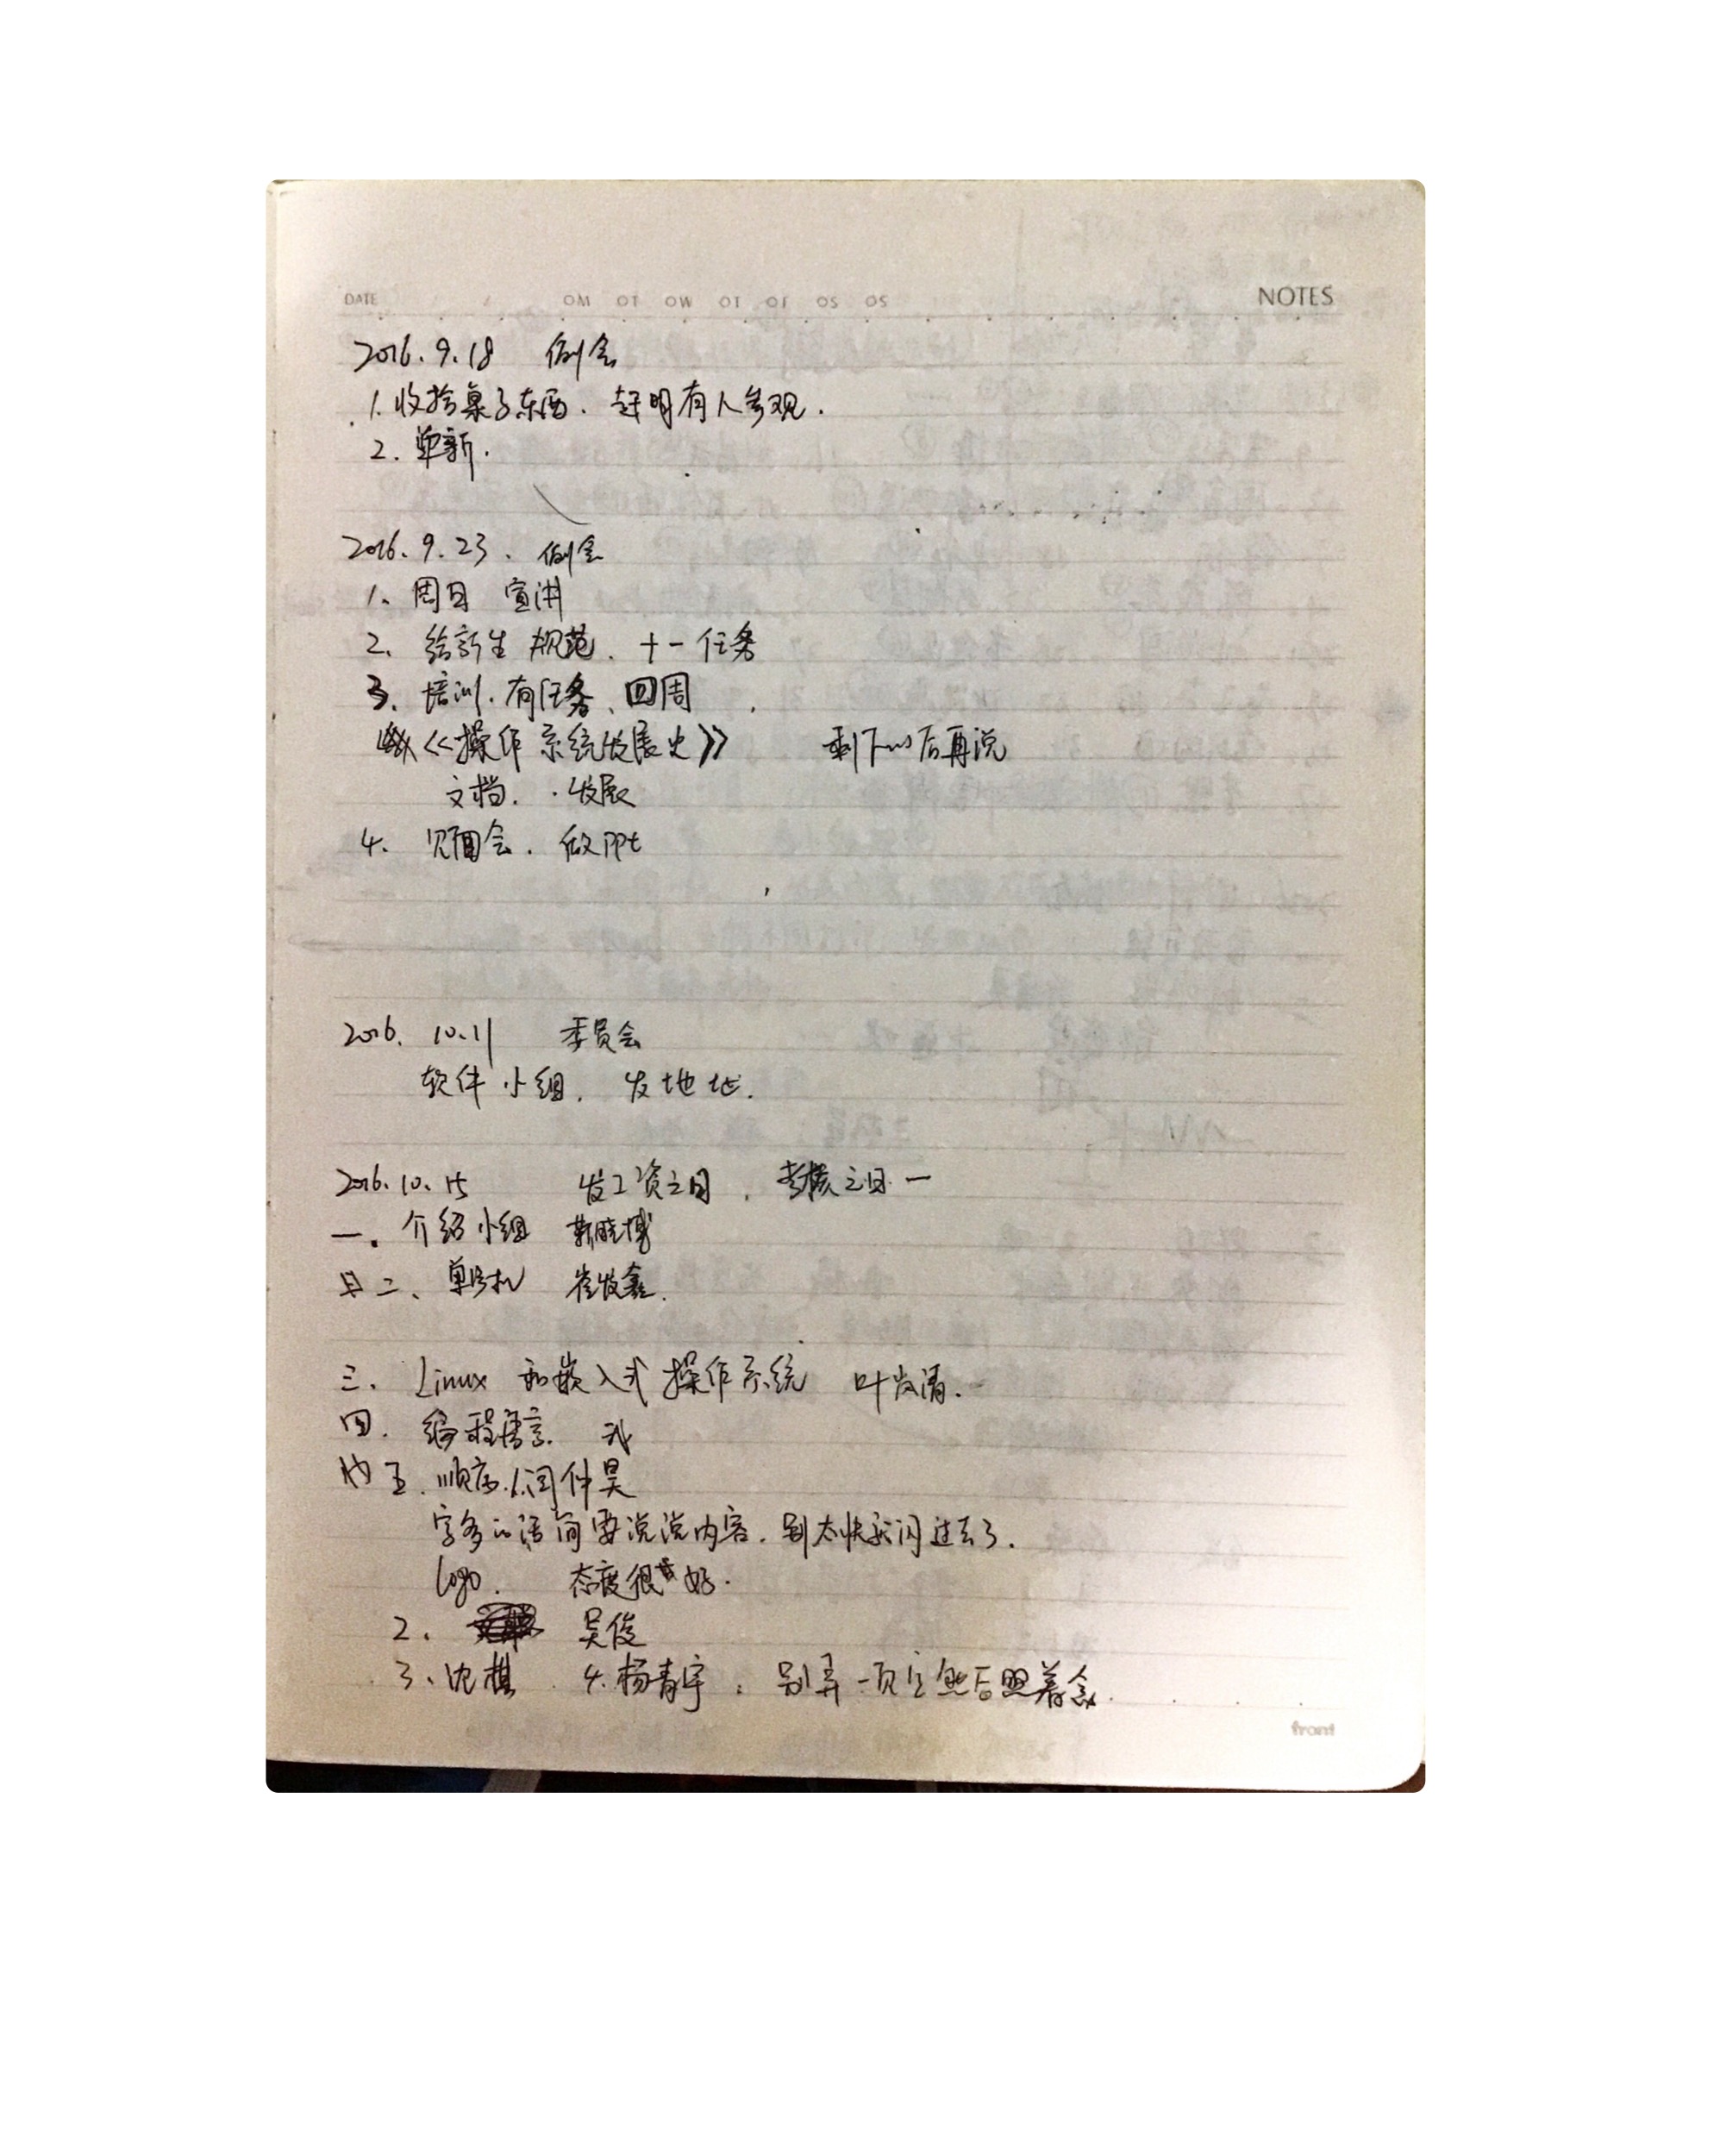 DATE / / MO TO WO TO FO SO SO NOTES
2016.9.18 例会
1.收拾桌子东西. 赶明有人参观.
2. 革新.
2016.9.23. 例会
1、周日 宣讲
2. 给新生 规范. 十一任务
3. 培训. 有任务、四周
《操作系统发展史》 剩下以后再说
文档. 发展
4. 见面会. 做PPt
2016. 10.11 委员会
软件小组. 发地址.
2016.10.15 发工资之日, 考核之日一
一. 介绍小组 靳晓博
二、单片机 崔发鑫.
三. Linux 和嵌入式操作系统 叶发清.
四. 编程语言 我
五. 顺序.1.闫仲昊
字多的话简要说说内容. 别太快就闪过去了.
logo. 态度很好.
2. 吴俊
3、沈棋 4.杨青宇. 别弄一页字然后照着念.
front